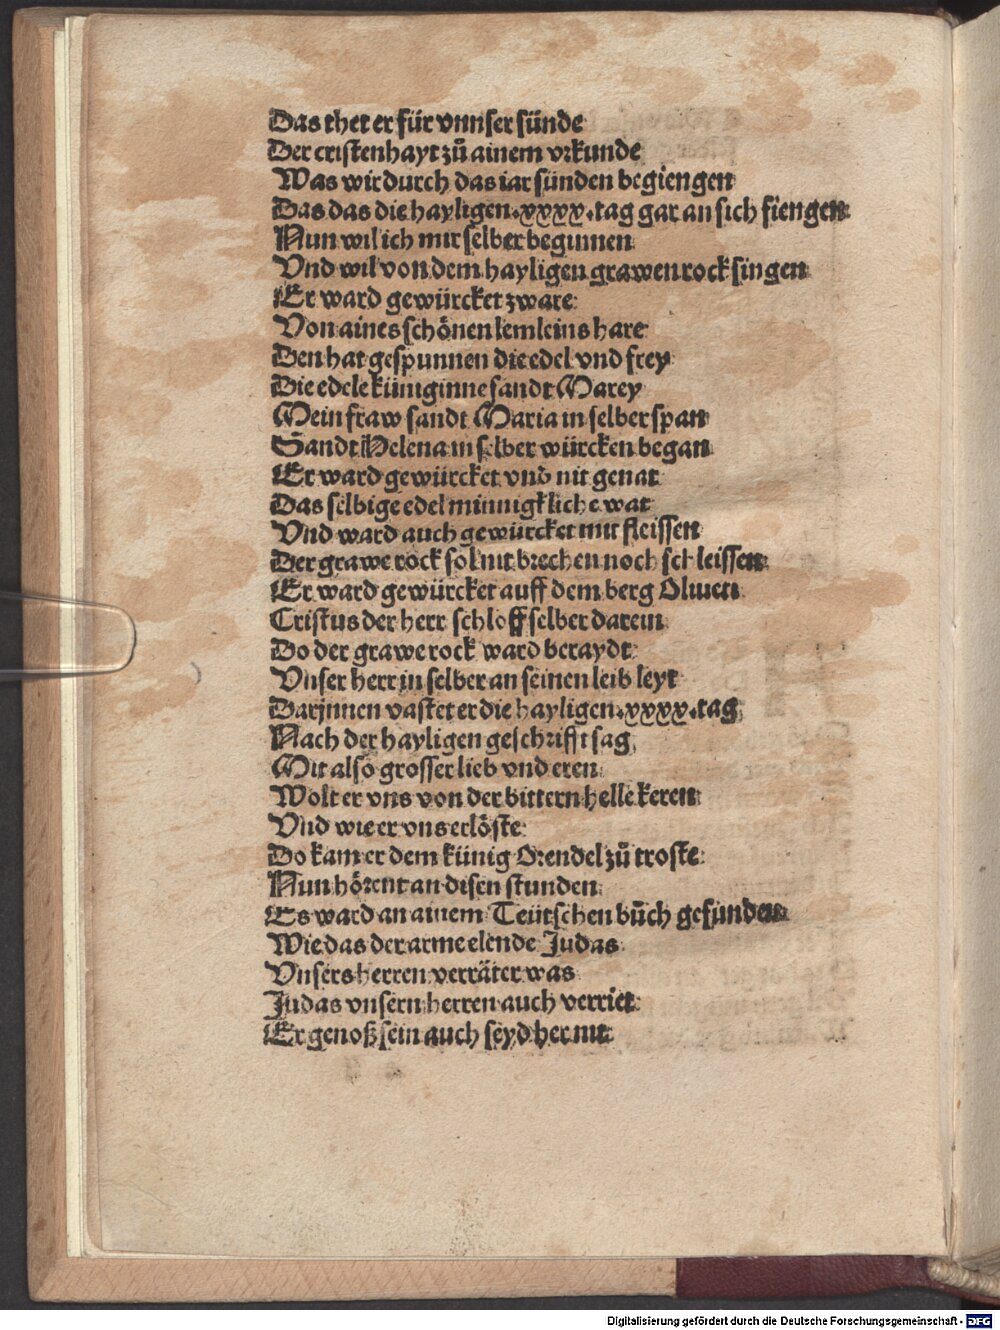 Das thet er für vnnser sünde
Der cristenhayt zů ainem vrkunde
Was wir durch das iar sünden begiengen
Das das die hayligen .xxxx. tag gar an sich fiengen
Nun wil ich mir selber beginnen
Vnd wil von dem hayligen grawen rock singen
Er ward gewürcket zware
Von aines schönen lemleins hare
Den hat gespunnen die edel vnd frey
Die edele küniginne sandt Marey
Mein fraw sandt Maria in selber span
Sandt Helena in selber würcken began
Er ward gewürcket vnd nit genat
Das selbige edel minnigkliche wat
Vnd ward auch gewürcket mit fleissen
Der grawe rock sol nit brechen noch schleissen
Er ward gewürcket auff dem berg Oliueti
Cristus der herr schloff selber darein
Do der grawe rock ward beraydt
Vnser herr in selber an seinen leib leyt
Darjnnen vastet er die hayligen .xxxx. tag
Nach der hayligen geschrifft sag
Mit also grosser lieb vnd eren
Wolt er vns von der bittern helle keren
Vnd wie er vns erlöste
Do kam er dem künig Orendel zů troste
Nun hörent an disen stunden
Es ward an ainem Teütschen bůch gefunden
Wie das der arme elende Judas
Vnsers herren verräter was
Judas vnsern herren auch verriet
Er genoß sein auch seyd her nit
Digitalisierung gefördert durch die Deutsche Forschungsgemeinschaft - DFG